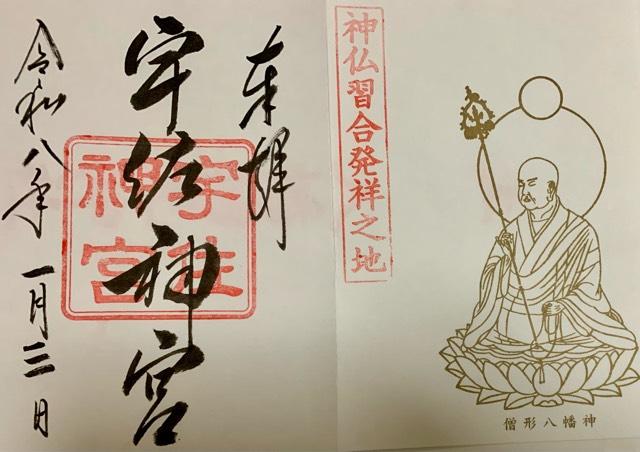 神仏習合発祥之地
僧形八幡神
奉拝
宇佐神宮
宇佐
神宮
令和八年 一月三日